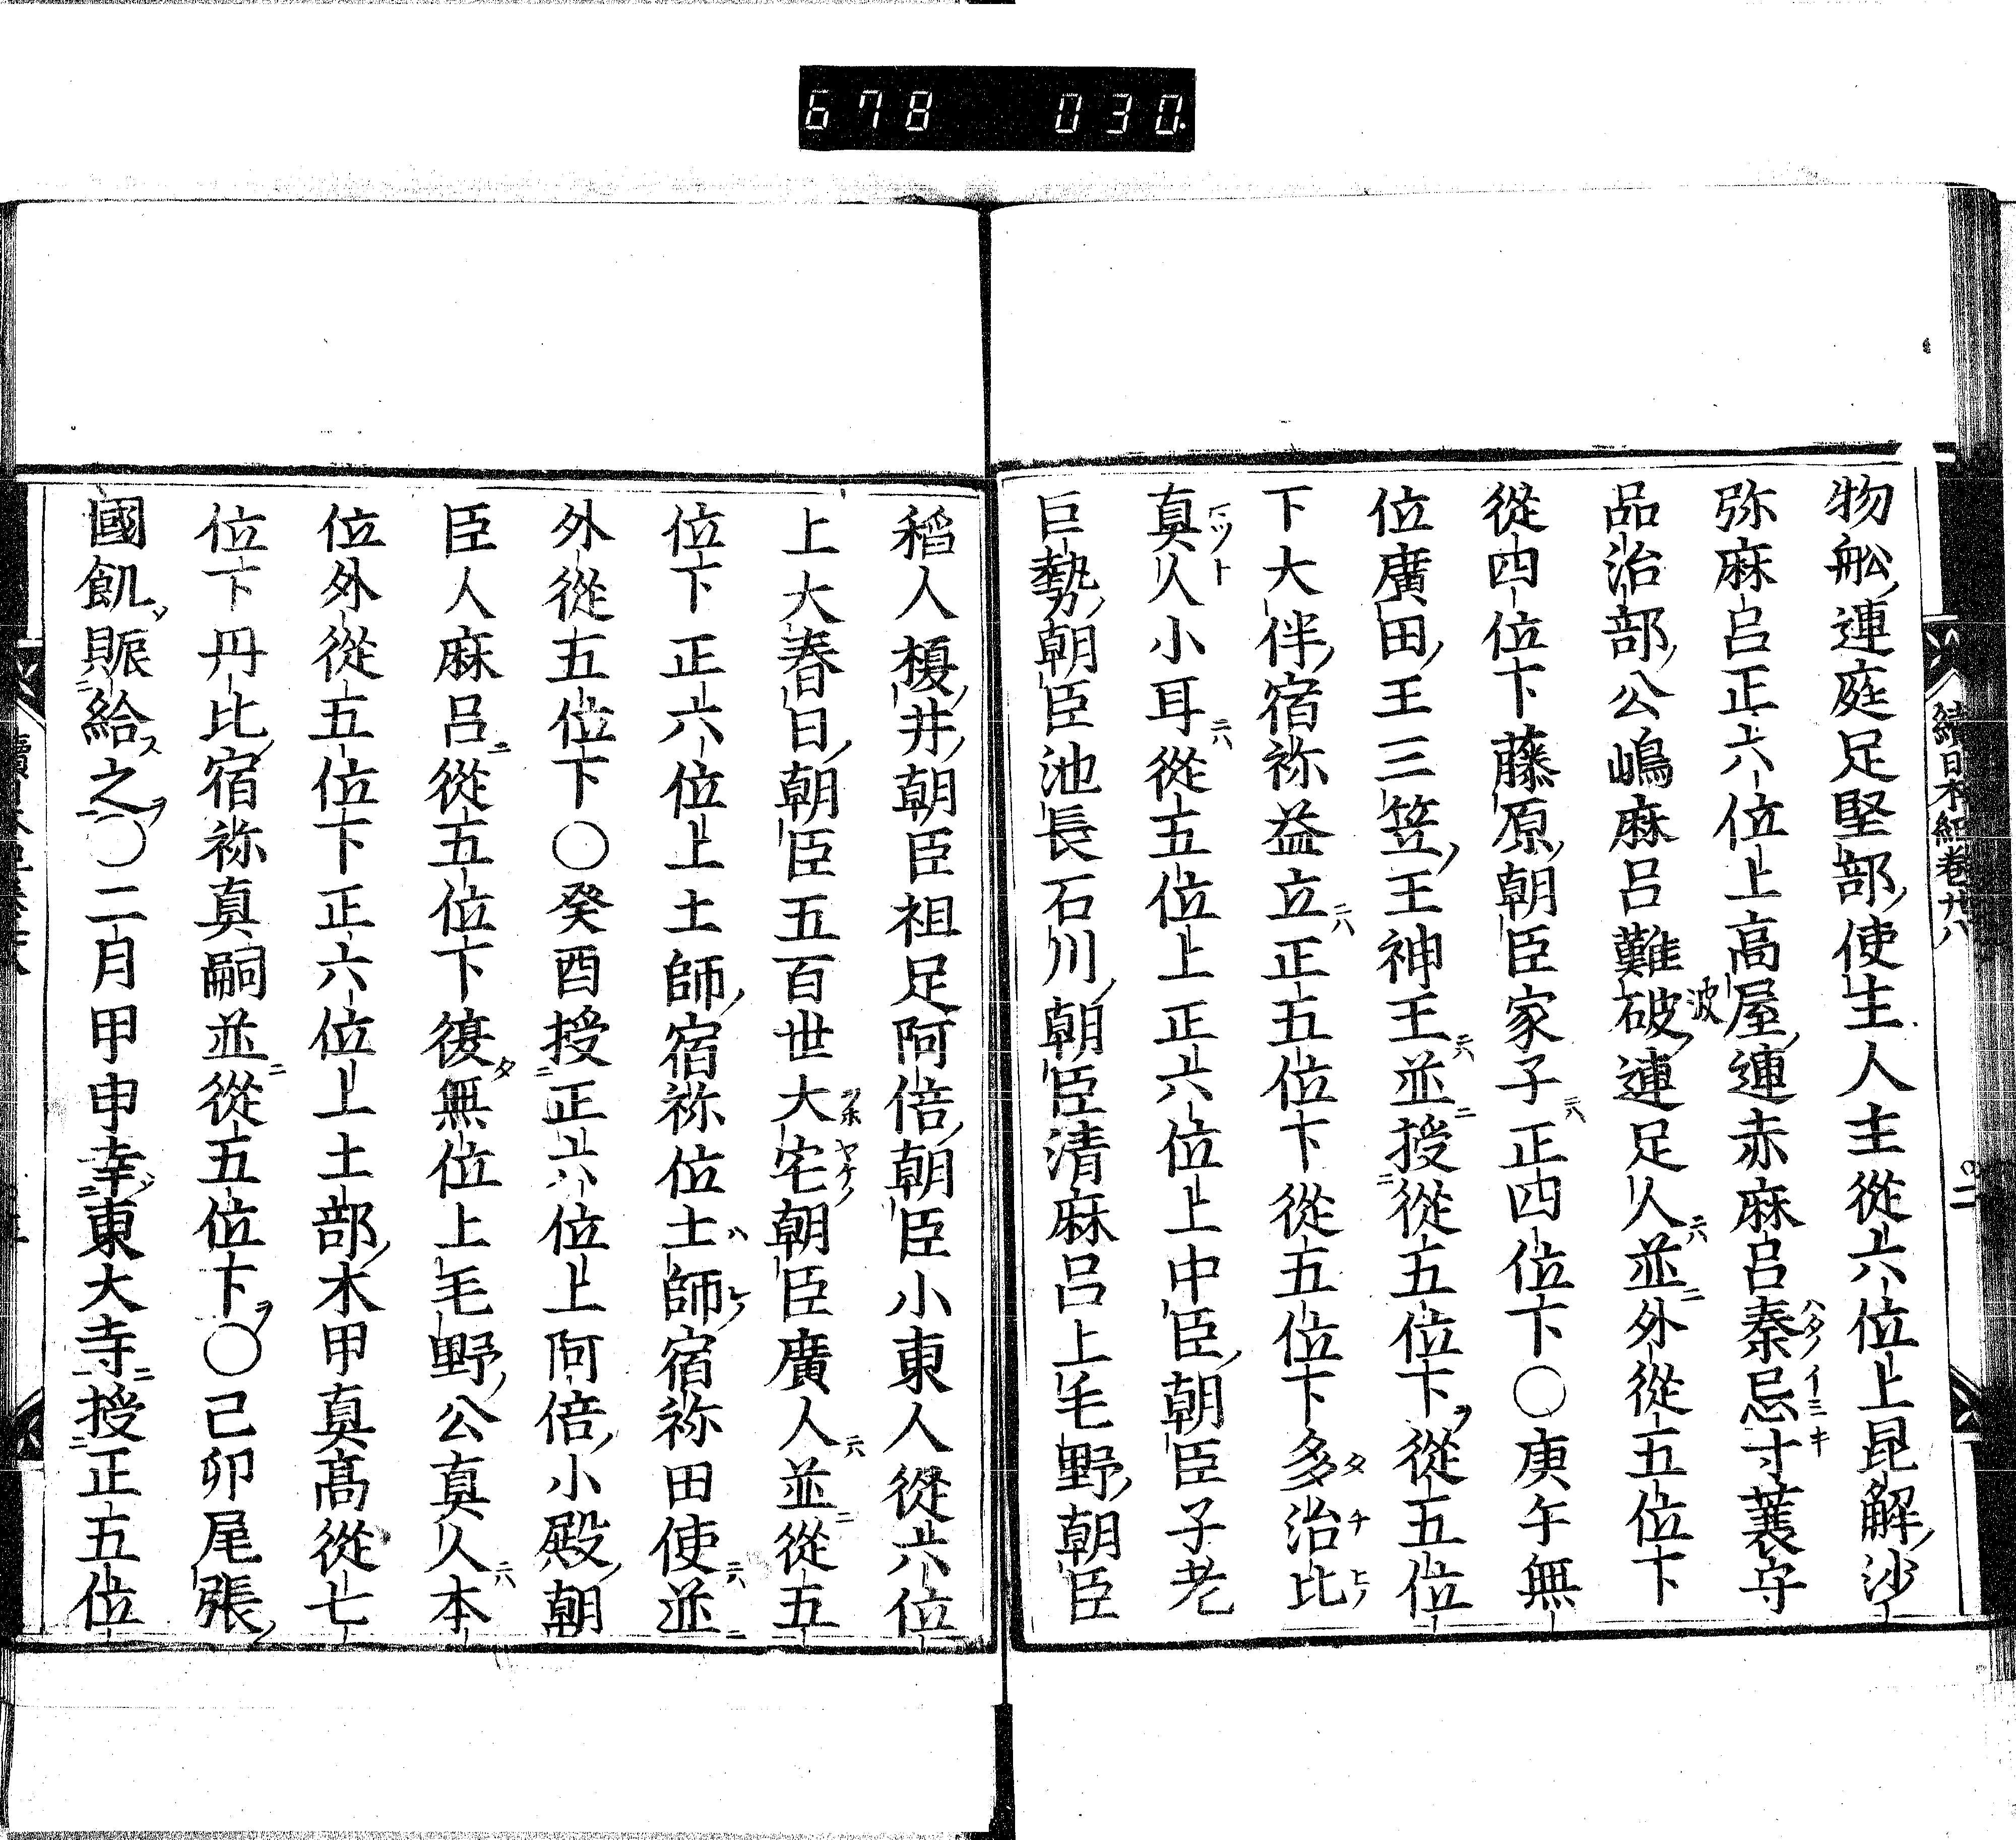 678 030
續日本紀卷廿八
二
物舩連庭足堅部使生人主從六位上昆解沙
弥麻呂正六位上高屋連赤麻呂秦忌寸蓑守
ハタノイミキ
品治部公嶋麻呂難破連足人並外從五位下
波
從四位下藤原朝臣家子正四位下○庚午無
位廣田王三笠王神王並授從五位下從五位
下大伴宿祢益立正五位下從五位下多治比
タチヒノ
真人小耳從五位上正六位上中臣朝臣子老
巨勢朝臣池長石川朝臣清麻呂上毛野朝臣
稻人榎井朝臣祖足阿倍朝臣小東人從六位
上大春日朝臣五百世大宅朝臣廣人並從五
位下正六位上土師宿祢位士師宿祢田使並
外從五位下○癸酉授正六位上阿倍小殿朝
臣人麻呂從五位下復無位上毛野公真人本
位外從五位下正六位上土部木甲真髙從七
位下丹比宿祢真嗣並從五位下○己卯尾張
國飢賑給之○二月甲申幸東大寺授正五位